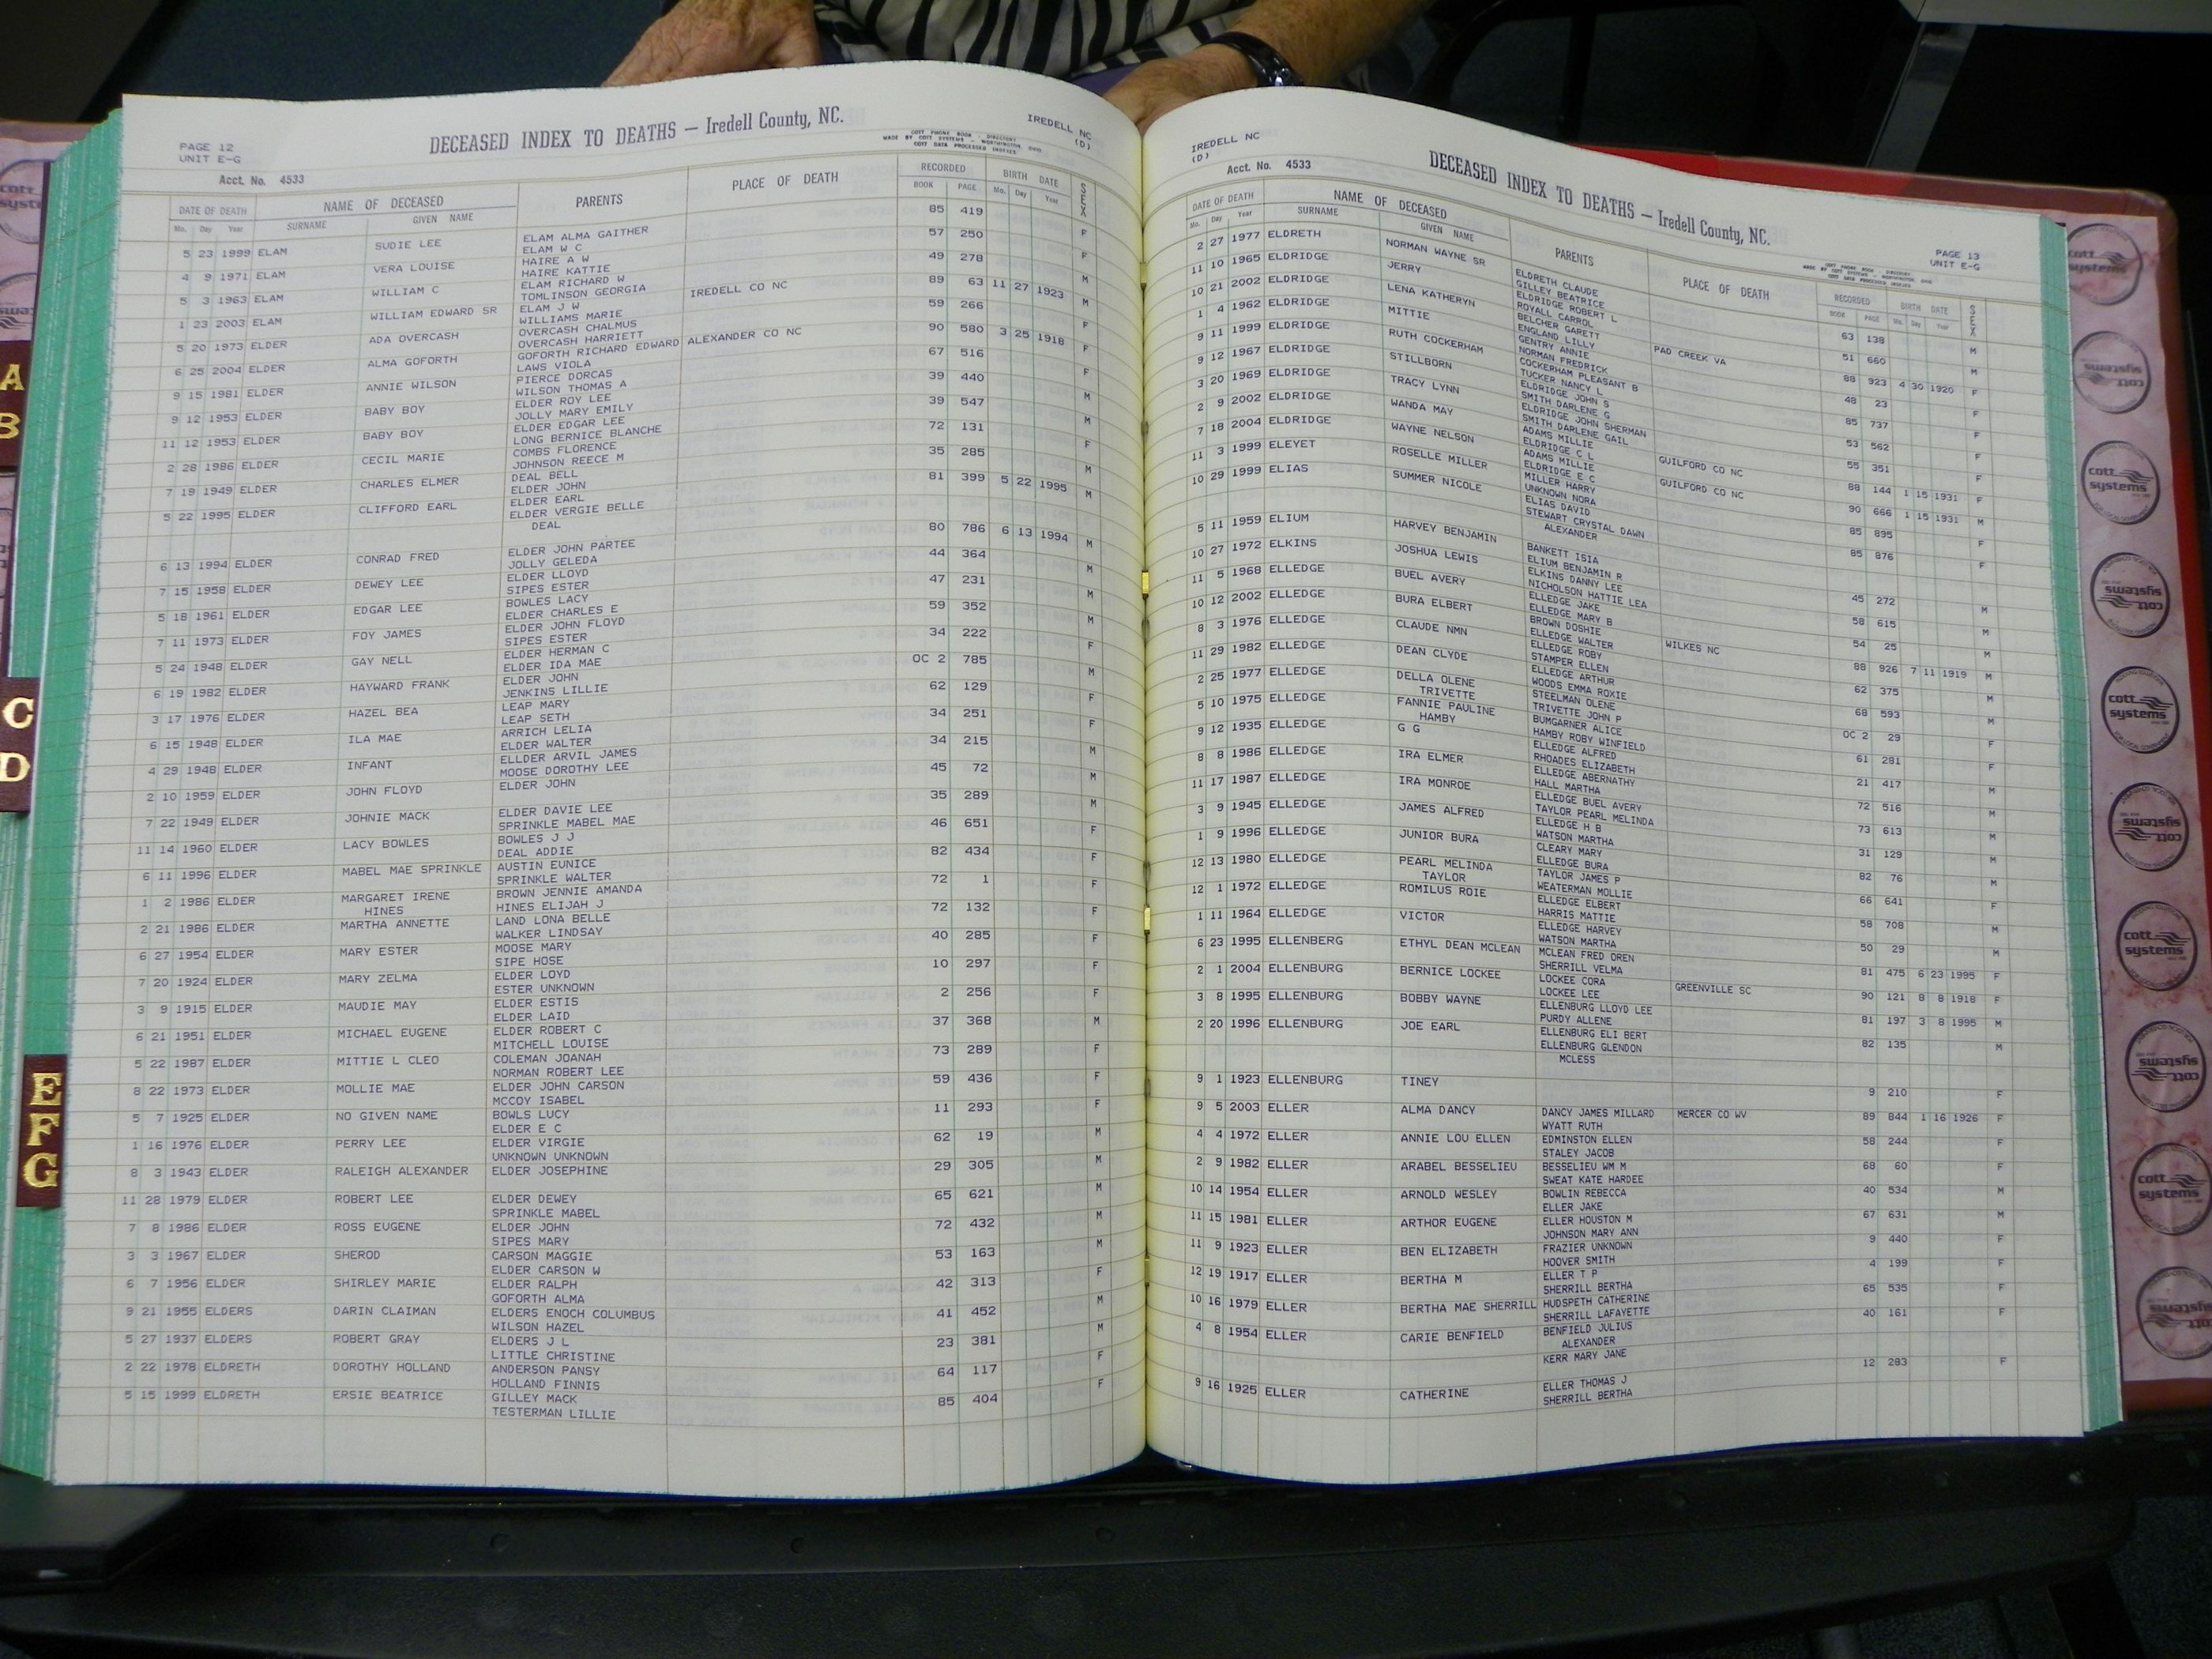 IREDELL NC
(D)
DECEASED INDEX TO DEATHS — Iredell County, NC.
COTT PHONE BOOK - DIRECTORY
MADE BY COTT SYSTEMS - WORTHINGTON, OHIO
COTT DATA PROCESSED INDEXES
PAGE 12
UNIT E-G
Acct. No. 4533
DATE OF DEATH NAME OF DECEASED PARENTS PLACE OF DEATH RECORDED BIRTH DATE SEX
Mo. Day Year SURNAME GIVEN NAME BOOK PAGE Mo. Day Year
5 23 1999 ELAM SUDIE LEE ELAM ALMA GAITHER 85 419 F
ELAM W C
4 9 1971 ELAM VERA LOUISE HAIRE A W 57 250 F
HAIRE KATTIE
5 3 1963 ELAM WILLIAM C ELAM RICHARD W 49 278 M
TOMLINSON GEORGIA
1 23 2003 ELAM WILLIAM EDWARD SR ELAM J W IREDELL CO NC 89 63 11 27 1923 M
WILLIAMS MARIE
5 20 1973 ELDER ADA OVERCASH OVERCASH CHALMUS 59 266 F
OVERCASH HARRIETT
6 25 2004 ELDER ALMA GOFORTH GOFORTH RICHARD EDWARD ALEXANDER CO NC 90 580 3 25 1918 F
LAWS VIOLA
9 15 1981 ELDER ANNIE WILSON PIERCE DORCAS 67 516 F
WILSON THOMAS A
9 12 1953 ELDER BABY BOY ELDER ROY LEE 39 440 M
JOLLY MARY EMILY
11 12 1953 ELDER BABY BOY ELDER EDGAR LEE 39 547 M
LONG BERNICE BLANCHE
2 28 1986 ELDER CECIL MARIE COMBS FLORENCE 72 131 F
JOHNSON REECE M
7 19 1949 ELDER CHARLES ELMER DEAL BELL 35 285 M
ELDER JOHN
5 22 1995 ELDER CLIFFORD EARL ELDER EARL 81 399 5 22 1995 M
ELDER VERGIE BELLE
DEAL
6 13 1994 ELDER CONRAD FRED ELDER JOHN PARTEE 80 786 6 13 1994 M
JOLLY GELEDA
7 15 1958 ELDER DEWEY LEE ELDER LLOYD 44 364 M
SIPES ESTER
5 18 1961 ELDER EDGAR LEE BOWLES LACY 47 231 M
ELDER CHARLES E
7 11 1973 ELDER FOY JAMES ELDER JOHN FLOYD 59 352 M
SIPES ESTER
5 24 1948 ELDER GAY NELL ELDER HERMAN C 34 222 F
ELDER IDA MAE
6 19 1982 ELDER HAYWARD FRANK ELDER JOHN OC 2 785 M
JENKINS LILLIE
3 17 1976 ELDER HAZEL BEA LEAP MARY 62 129 F
LEAP SETH
6 15 1948 ELDER ILA MAE ARRICH LELIA 34 251 F
ELDER WALTER
4 29 1948 ELDER INFANT ELLDER ARVIL JAMES 34 215 M
MOOSE DOROTHY LEE
2 10 1959 ELDER JOHN FLOYD ELDER JOHN 45 72 M
7 22 1949 ELDER JOHNIE MACK ELDER DAVIE LEE 35 289 M
SPRINKLE MABEL MAE
11 14 1960 ELDER LACY BOWLES BOWLES J J 46 651 F
DEAL ADDIE
6 11 1996 ELDER MABEL MAE SPRINKLE AUSTIN EUNICE 82 434 F
SPRINKLE WALTER
1 2 1986 ELDER MARGARET IRENE BROWN JENNIE AMANDA 72 1 F
HINES HINES ELIJAH J
2 21 1986 ELDER MARTHA ANNETTE LAND LONA BELLE 72 132 F
WALKER LINDSAY
6 27 1954 ELDER MARY ESTER MOOSE MARY 40 285 F
SIPE HOSE
7 20 1924 ELDER MARY ZELMA ELDER LOYD 10 297 F
ESTER UNKNOWN
3 9 1915 ELDER MAUDIE MAY ELDER ESTIS 2 256 F
ELDER LAID
6 21 1951 ELDER MICHAEL EUGENE ELDER ROBERT C 37 368 M
MITCHELL LOUISE
5 22 1987 ELDER MITTIE L CLEO COLEMAN JOANAH 73 289 F
NORMAN ROBERT LEE
8 22 1973 ELDER MOLLIE MAE ELDER JOHN CARSON 59 436 F
MCCOY ISABEL
5 7 1925 ELDER NO GIVEN NAME BOWLS LUCY 11 293 F
ELDER E C
1 16 1976 ELDER PERRY LEE ELDER VIRGIE 62 19 M
UNKNOWN UNKNOWN
8 3 1943 ELDER RALEIGH ALEXANDER ELDER JOSEPHINE 29 305 M
11 28 1979 ELDER ROBERT LEE ELDER DEWEY 65 621 M
SPRINKLE MABEL
7 8 1986 ELDER ROSS EUGENE ELDER JOHN 72 432 M
SIPES MARY
3 3 1967 ELDER SHEROD CARSON MAGGIE 53 163 M
ELDER CARSON W
6 7 1956 ELDER SHIRLEY MARIE ELDER RALPH 42 313 F
GOFORTH ALMA
9 21 1955 ELDERS DARIN CLAIMAN ELDERS ENOCH COLUMBUS 41 452 M
WILSON HAZEL
5 27 1937 ELDERS ROBERT GRAY ELDERS J L 23 381 M
LITTLE CHRISTINE
2 22 1978 ELDRETH DOROTHY HOLLAND ANDERSON PANSY 64 117 F
HOLLAND FINNIS
5 15 1999 ELDRETH ERSIE BEATRICE GILLEY MACK 85 404 F
TESTERMAN LILLIE
IREDELL NC
(D)
DECEASED INDEX TO DEATHS — Iredell County, NC.
Acct. No. 4533
PAGE 13
UNIT E-G
DATE OF DEATH NAME OF DECEASED PARENTS PLACE OF DEATH RECORDED BIRTH DATE SEX
Mo. Day Year SURNAME GIVEN NAME BOOK PAGE Mo. Day Year
2 27 1977 ELDRETH NORMAN WAYNE SR ELDRETH CLAUDE 63 138 M
GILLEY BEATRICE
11 10 1965 ELDRIDGE JERRY ELDRIDGE ROBERT L 51 660 M
ROYALL CARROL
10 21 2002 ELDRIDGE LENA KATHERYN BELCHER GARETT PAD CREEK VA 88 923 4 30 1920 F
ENGLAND LILLY
1 4 1962 ELDRIDGE MITTIE GENTRY ANNIE 48 23 F
NORMAN FREDRICK
9 11 1999 ELDRIDGE RUTH COCKERHAM COCKERHAM PLEASANT B 85 737 F
TUCKER NANCY L
9 12 1967 ELDRIDGE STILLBORN ELDRIDGE JOHN S 53 562 F
SMITH DARLENE G
3 20 1969 ELDRIDGE TRACY LYNN ELDRIDGE JOHN SHERMAN 55 351 F
SMITH DARLENE GAIL
2 9 2002 ELDRIDGE WANDA MAY ADAMS MILLIE GUILFORD CO NC 88 144 1 15 1931 F
ELDRIDGE C L
7 18 2004 ELDRIDGE WAYNE NELSON ADAMS MILLIE GUILFORD CO NC 90 666 1 15 1931 M
ELDRIDGE E C
11 3 1999 ELEYET ROSELLE MILLER MILLER HARRY 85 895 F
UNKNOWN NORA
10 29 1999 ELIAS SUMMER NICOLE ELIAS DAVID 85 876 F
STEWART CRYSTAL DAWN
ALEXANDER
5 11 1959 ELIUM HARVEY BENJAMIN BANKETT ISIA 45 272 M
ELIUM BENJAMIN R
10 27 1972 ELKINS JOSHUA LEWIS ELKINS DANNY LEE 58 615 M
NICHOLSON HATTIE LEA
11 5 1968 ELLEDGE BUEL AVERY ELLEDGE JAKE 54 25 M
ELLEDGE MARY B
10 12 2002 ELLEDGE BURA ELBERT BROWN DOSHIE WILKES NC 88 926 7 11 1919 M
ELLEDGE WALTER
8 3 1976 ELLEDGE CLAUDE NMN ELLEDGE ROBY 62 375 M
STAMPER ELLEN
11 29 1982 ELLEDGE DEAN CLYDE ELLEDGE ARTHUR 68 593 M
WOODS EMMA ROXIE
2 25 1977 ELLEDGE DELLA OLENE STEELMAN OLENE OC 2 29 F
TRIVETTE TRIVETTE JOHN P
5 10 1975 ELLEDGE FANNIE PAULINE BUMGARNER ALICE 61 281 F
HAMBY HAMBY ROBY WINFIELD
9 12 1935 ELLEDGE G G ELLEDGE ALFRED 21 417 M
RHOADES ELIZABETH
8 8 1986 ELLEDGE IRA ELMER ELLEDGE ABERNATHY 72 516 M
HALL MARTHA
11 17 1987 ELLEDGE IRA MONROE ELLEDGE BUEL AVERY 73 613 M
TAYLOR PEARL MELINDA
3 9 1945 ELLEDGE JAMES ALFRED ELLEDGE H B 31 129 M
WATSON MARTHA
1 9 1996 ELLEDGE JUNIOR BURA CLEARY MARY 82 76 M
ELLEDGE BURA
12 13 1980 ELLEDGE PEARL MELINDA TAYLOR JAMES P 66 641 F
TAYLOR WEATERMAN MOLLIE
12 1 1972 ELLEDGE ROMILUS ROIE ELLEDGE ELBERT 58 708 M
HARRIS MATTIE
1 11 1964 ELLEDGE VICTOR ELLEDGE HARVEY 50 29 M
WATSON MARTHA
6 23 1995 ELLENBERG ETHYL DEAN MCLEAN MCLEAN FRED OREN 81 475 6 23 1995 F
SHERRILL VELMA
2 1 2004 ELLENBURG BERNICE LOCKEE LOCKEE CORA GREENVILLE SC 90 121 8 8 1918 F
LOCKEE LEE
3 8 1995 ELLENBURG BOBBY WAYNE ELLENBURG LLOYD LEE 81 197 3 8 1995 M
PURDY ALLENE
2 20 1996 ELLENBURG JOE EARL ELLENBURG ELI BERT 82 135 M
ELLENBURG GLENDON
MCLESS
9 1 1923 ELLENBURG TINEY 9 210 F
9 5 2003 ELLER ALMA DANCY DANCY JAMES MILLARD MERCER CO WV 89 844 1 16 1926 F
WYATT RUTH
4 4 1972 ELLER ANNIE LOU ELLEN EDMINSTON ELLEN 58 244 F
STALEY JACOB
2 9 1982 ELLER ARABEL BESSELIEU BESSELIEU WM M 68 60 F
SWEAT KATE HARDEE
10 14 1954 ELLER ARNOLD WESLEY BOWLIN REBECCA 40 534 M
ELLER JAKE
11 15 1981 ELLER ARTHOR EUGENE ELLER HOUSTON M 67 631 M
JOHNSON MARY ANN
11 9 1923 ELLER BEN ELIZABETH FRAZIER UNKNOWN 9 440 F
HOOVER SMITH
12 19 1917 ELLER BERTHA M ELLER T P 4 199 F
SHERRILL BERTHA
10 16 1979 ELLER BERTHA MAE SHERRILL HUDSPETH CATHERINE 65 535 F
SHERRILL LAFAYETTE
4 8 1954 ELLER CARIE BENFIELD BENFIELD JULIUS 40 161 F
ALEXANDER
KERR MARY JANE
9 16 1925 ELLER CATHERINE ELLER THOMAS J 12 283 F
SHERRILL BERTHA
A
B
C
D
E
F
G
cott systems
cott systems
cott systems
cott systems
cott systems
cott systems
cott systems
cott systems
cott systems